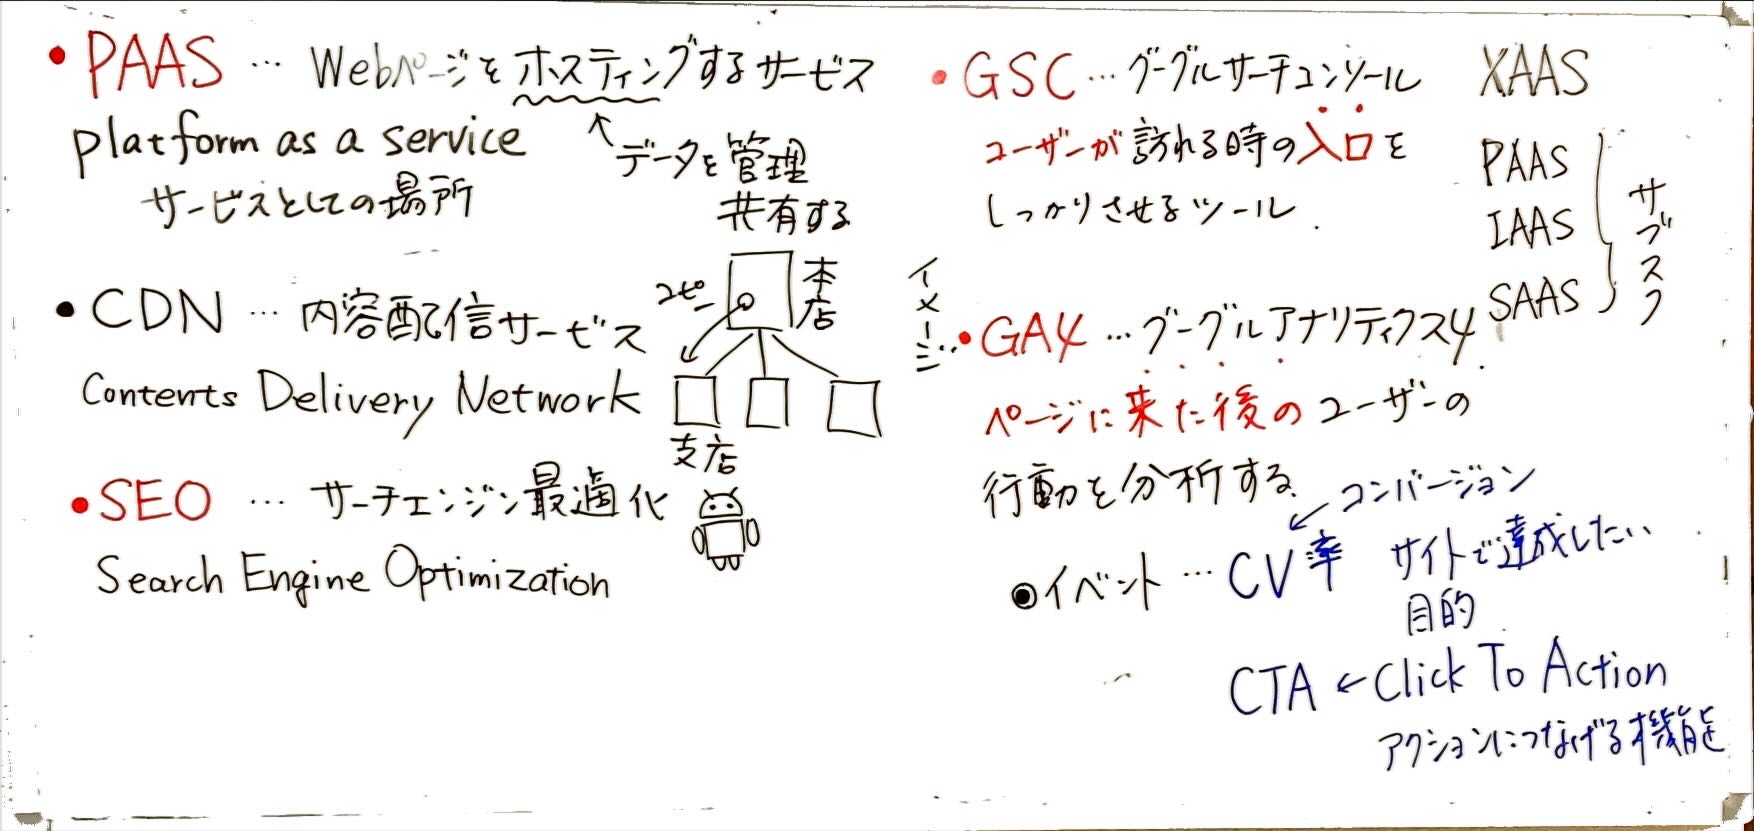 ・PAAS … Webページをホスティングするサービス
platform as a service
サービスとしての場所
↑データを管理
共有する
・CDN … 内容配信サービス
Contents Delivery Network
コピー
本店
支店
・SEO … サーチエンジン最適化
Search Engine Optimization
・GSC … グーグルサーチコンソール
ユーザーが訪れる時の入口を
しっかりさせるツール
XAAS
PAAS
IAAS
SAAS
サブスク
イメージ…
・GA4 … グーグルアナリティクス4
ページに来た後のユーザーの
行動を分析する
←コンバージョン
●イベント … CV率 サイトで達成したい
目的
CTA ← Click To Action
アクションにつなげる機能